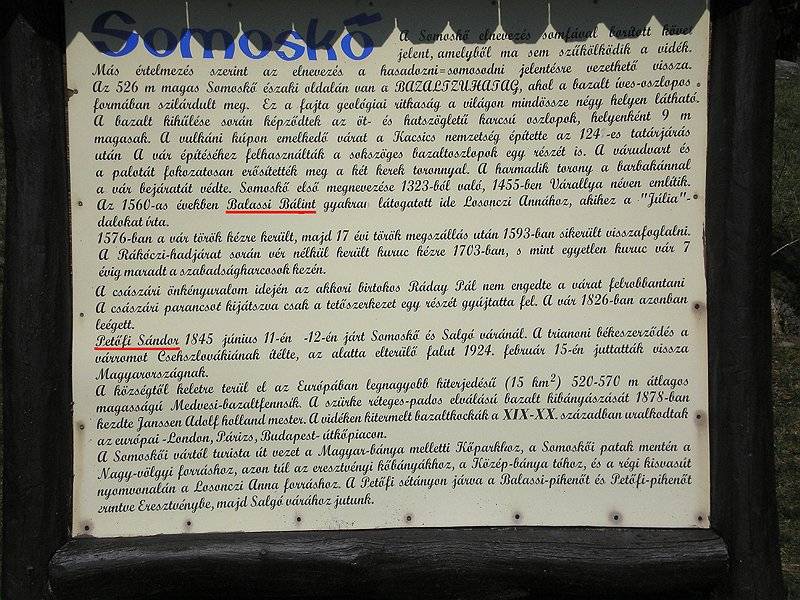 Somoskő
A Somoskő elnevezés somfával borított követ
jelent, amelyből ma sem szűkölködik a vidék.
Más értelmezés szerint az elnevezés a hasadozni=somosodni jelentésre vezethető vissza.
Az 526 m magas Somoskő északi oldalán van a BAZALTZUHATAG, ahol a bazalt íves-oszlopos
formában szilárdult meg. Ez a fajta geológiai ritkaság a világon mindössze négy helyen látható.
A bazalt kihűlése során képződtek az öt- és hatszögletű karcsú oszlopok, helyenként 9 m
magasak. A vulkáni kúpon emelkedő várat a Kacsics nemzetség építette az 124 -es tatárjárás
után A vár építéséhez felhasználták a sokszöges bazaltoszlopok egy részét is. A várudvart és
a palotát fokozatosan erősítették meg a két kerek toronnyal. A harmadik torony a barbakánnal
a vár bejáratát védte. Somoskő első megnevezése 1323-ból való, 1455-ben Várallya néven említik.
Az 1560-as években Balassi Bálint gyakran látogatott ide Losonczi Annához, akihez a "Júlia"-
dalokat írta.
1576-ban a vár török kézre került, majd 17 évi török megszállás után 1593-ban sikerült visszafoglalni.
A Rákóczi-hadjárat során vér nélkül került kuruc kézre 1703-ban, s mint egyetlen kuruc vár 7
évig maradt a szabadságharcosok kezén.
A császári önkényuralom idején az akkori birtokos Ráday Pál nem engedte a várat felrobbantani
A császári parancsot kijátszva csak a tetőszerkezet egy részét gyújtatta fel. A vár 1826-ban azonban
leégett.
Petőfi Sándor 1845 június 11-én -12-én járt Somoskő és Salgó váránál. A trianoni békeszerződés a
várromot Csehszlovákiának ítélte, az alatta elterülő falut 1924. február 15-én juttatták vissza
Magyarországnak.
A községtől keletre terül el az Európában legnagyobb kiterjedésű (15 km²) 520-570 m átlagos
magasságú Medvesi-bazaltfennsík. A szürke réteges-pados elválású bazalt kibányászását 1878-ban
kezdte Janssen Adolf holland mester. A vidéken kitermelt bazaltkockák a XIX-XX. században uralkodtak
az európai -London, Párizs, Budapest- útkőpiacon.
A Somoskői vártól turista út vezet a Magyar-bánya melletti Kőparkhoz, a Somoskői patak mentén a
Nagy-völgyi forráshoz, azon túl az eresztvényi kőbányákhoz, a Közép-bánya tóhoz, és a régi kisvasút
nyomvonalán a Losonczi Anna forráshoz. A Petőfi sétányon járva a Balassi-pihenőt és Petőfi-pihenőt
érintve Eresztvénybe, majd Salgó várához jutunk.